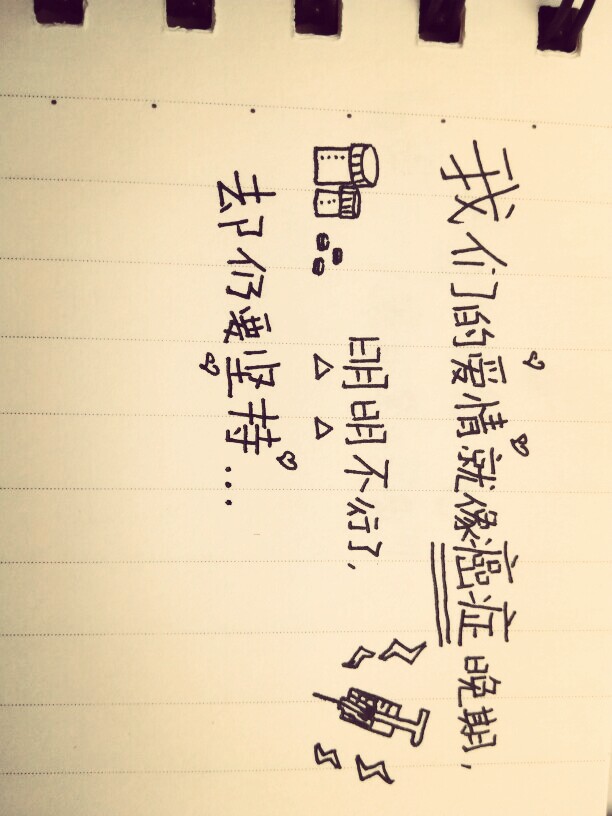 我们的爱情就像癌症晚期，
明明不行了，
却仍要坚持...